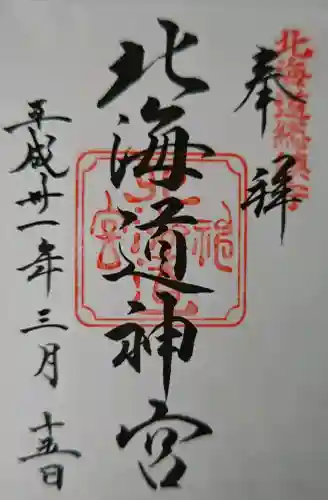 奉拝
北海道総鎮守
北海道神宮
平成廿一年三月十五日